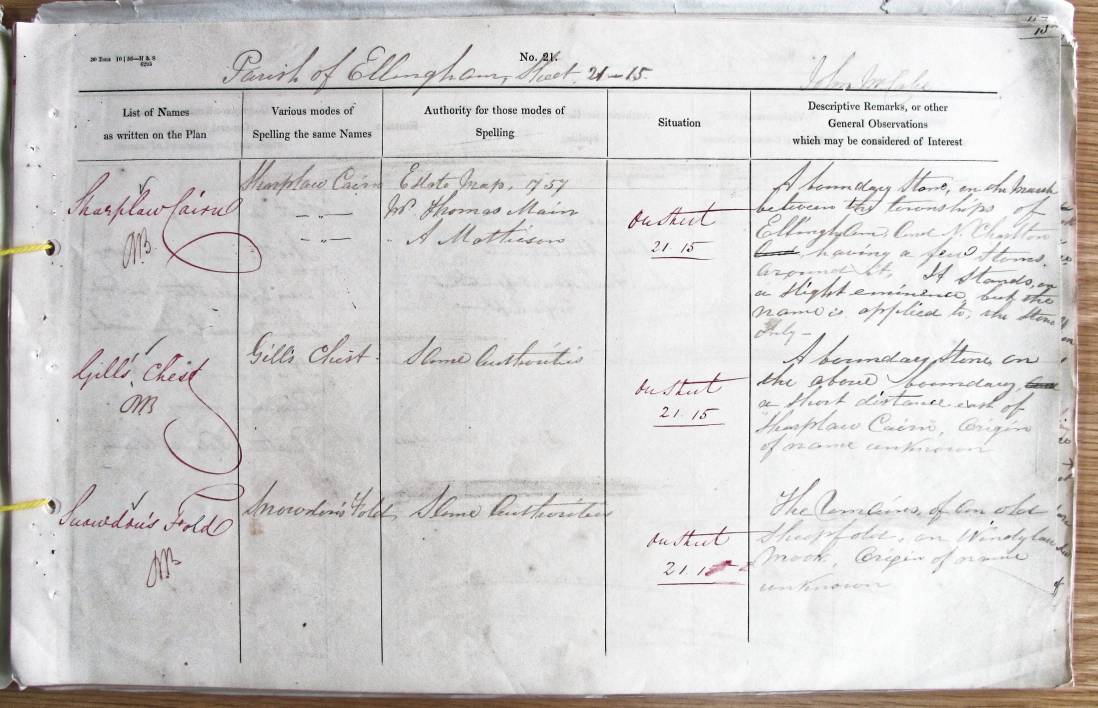 11
15
No. 21.
Parish of Ellingham, Sheet 21-15
List of Names
as written on the Plan
Various modes of
Spelling the same Names
Authority for those modes of
Spelling
Situation
Descriptive Remarks, or other
General Observations
which may be considered of Interest
Sharplaw Cairn
Sharplaw Cairn
Estate Map, 1757
Mr. Thomas Main
" A Mathieson
On Sheet
21 15
A boundary Stone, on the
between the townships of
Ellingham and N. Charlton
having a few Stones
around it. It Stands, on
a slight eminence, but the
name is applied to, the Stone
Only -
Gill's Chest
Gill's Chest
Same Authorities
On Sheet
21 15
A boundary Stone on
the above boundary,
a short distance east of
Sharplaw Cairn, Origin
of name unknown
Snowdon's Fold
Snowdon's Fold
Same Authorities
On Sheet
21 15
The Remains, of an old
Sheepfold, on Windylaw
Moor, Origin of name
unknown